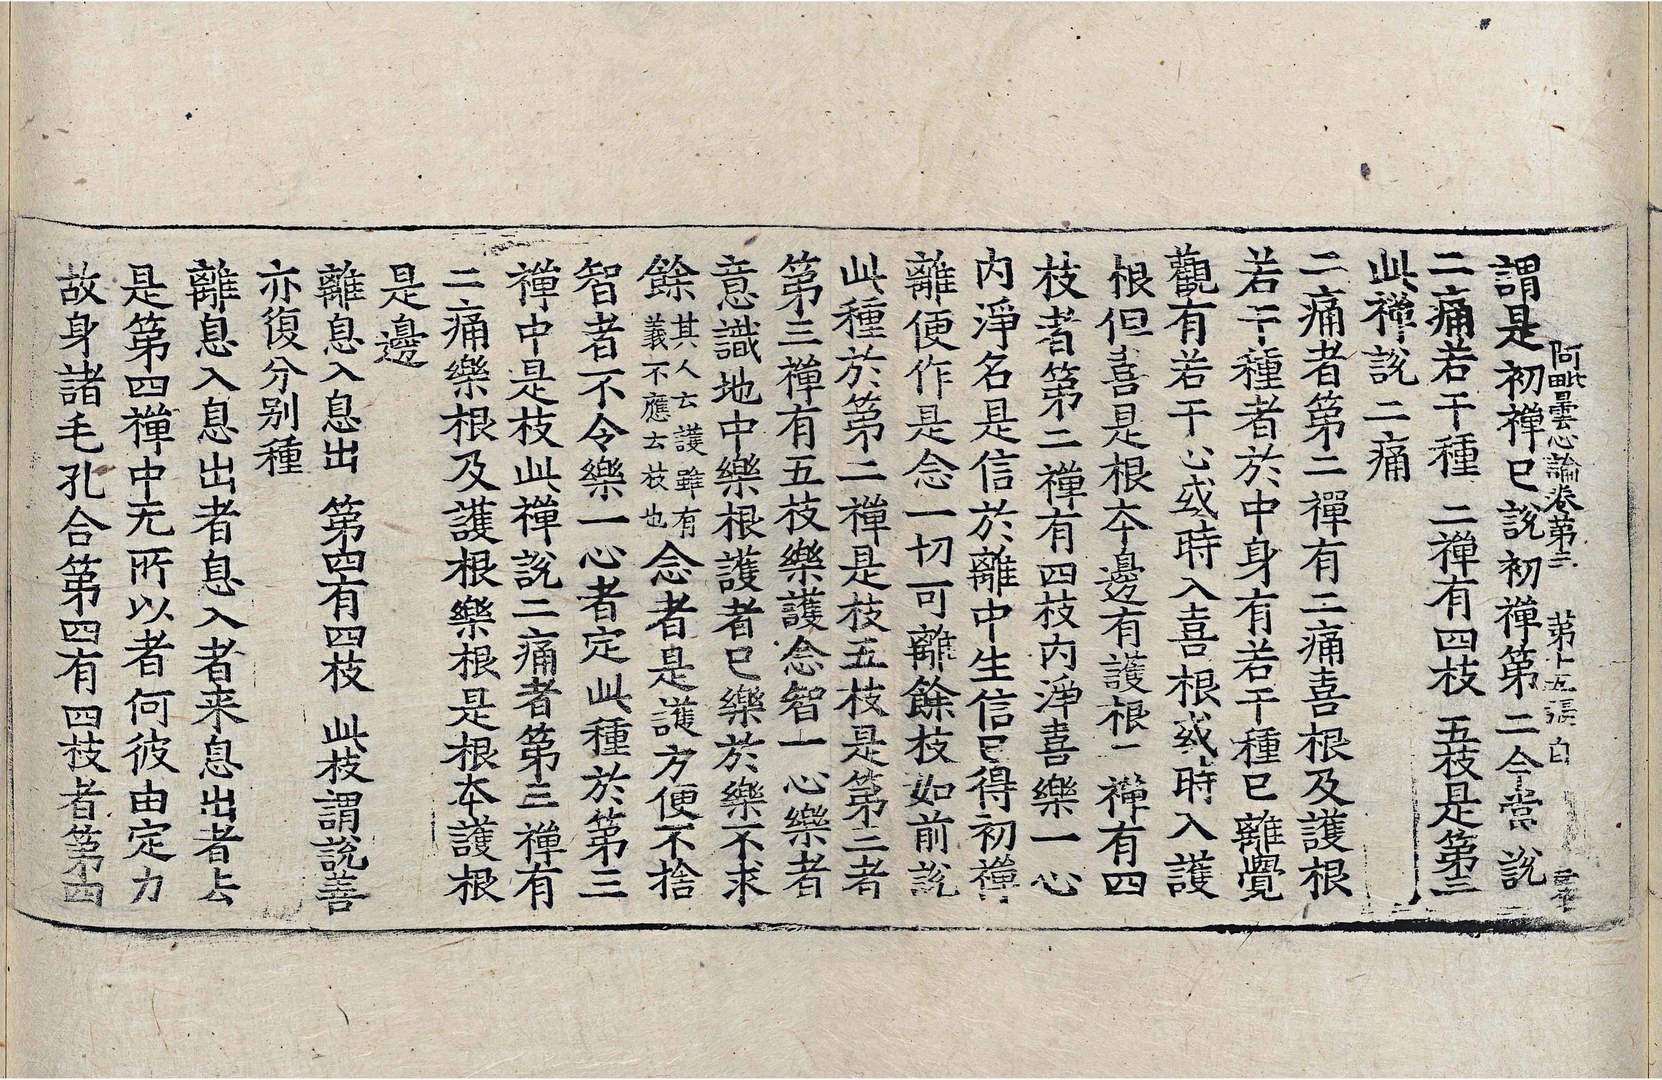 阿毗曇心論卷第三 第十五張 白
謂是初禪已說初禪第二今當說
二痛若干種 二禪有四枝 五枝是第三
此禪說二痛
二痛者第二禪有二痛喜根及護根
若干種者於中身有若干種已離覺
觀有若干心或時入喜根或時入護
根但喜是根本邊有護根二禪有四
枝者第二禪有四枝內淨喜樂一心
內淨名是信於離中生信已得初禪
離便作是念一切可離餘枝如前說
此種於第二禪是枝五枝是第三者
第三禪有五枝樂護念智一心樂者
意識地中樂根護者已樂於樂不求
餘其人云護雖有義不應云枝也念者是護方便不捨
智者不令樂一心者定此種於第三
禪中是枝此禪說二痛者第三禪有
二痛樂根及護根樂根是根本護根
是邊
離息入息出 第四有四枝 此枝謂說善
亦復分別種
離息入息出者息入者来息出者去
是第四禪中无所以者何彼由定力
故身諸毛孔合第四有四枝者第四